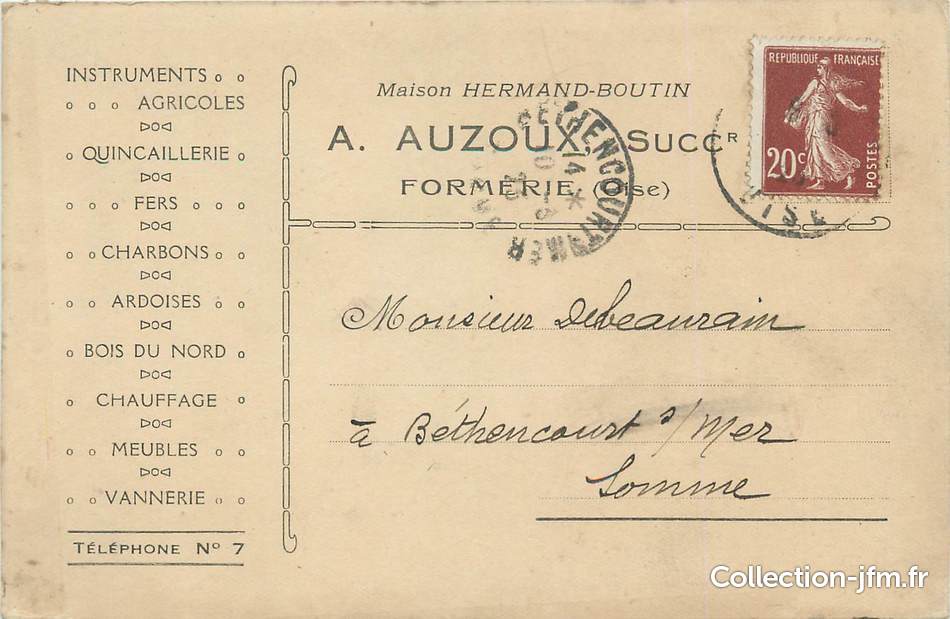 INSTRUMENTS
AGRICOLES
QUINCAILLERIE
FERS
CHARBONS
ARDOISES
BOIS DU NORD
CHAUFFAGE
MEUBLES
VANNERIE
TÉLÉPHONE Nº 7
Maison HERMAND-BOUTIN
A. AUZOUX, Succr
FORMERIE (Oise)
REPUBLIQUE FRANÇAISE
20c
POSTES
BETHENCOURT S MER
14
OISE
Monsieur Debeaurain
à Béthencourt s/Mer
Somme
Collection-jfm.fr